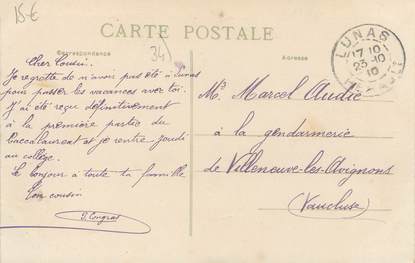 15€
CARTE POSTALE
Correspondance
34)
Adresse
LUNAS
17 10
23-10
10
HERAULT
Cher Cousin.
Je regrette de n'avoir pas été à Lunas
pour passer les vacances avec toi.
J'ai été reçu définitivement
à la première partie du
Baccalaureat et je rentre jeudi
au collège.
Le bonjour à toute ta famille
Ton cousin
Mr Marcel Audié
à la gendarmerie
de Villeneuve-les-Avignons
(Vaucluse)